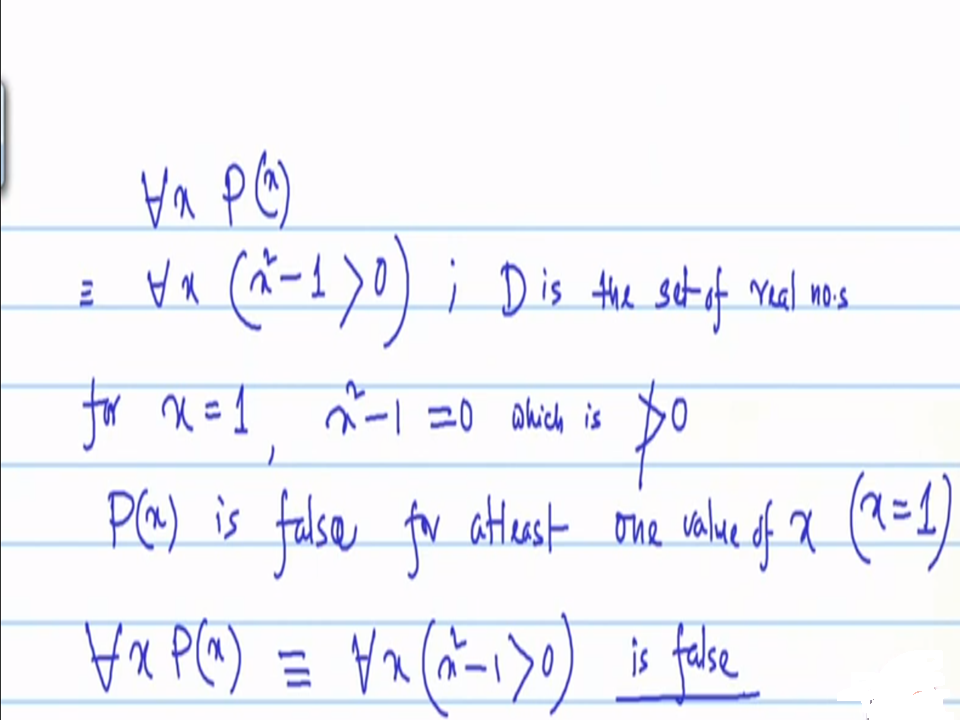 ∀x P(x)
≡ ∀x (x²-1 >0) ; D is the set of real no.s
for x = 1, x²-1 =0 which is ≯0
P(x) is false for atleast one value of x (x=1)
∀x P(x) ≡ ∀x (x²-1>0) is false